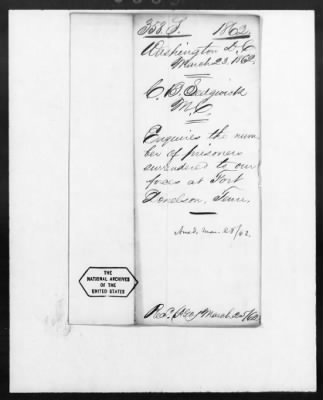 358. S. 1862.
Washington D.C
March 23. 1862.
C. B. Sedgwick
M.C.
Enquires the num
ber of prisoners
surrendered to our
forces at Fort
Donelson, Tenn.
Ansd, Mar. 28/62.
THE
NATIONAL ARCHIVES
OF THE
UNITED STATES
Rec. AGO, March 25/62